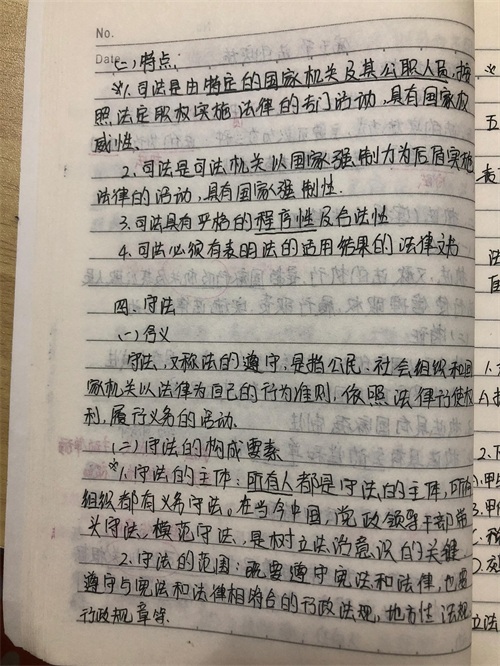 No.
Date
(二)特点:
※1.司法是由特定的国家机关及其公职人员,按
照法定职权实施法律的专门活动,具有国家权
威性.
2.司法是司法机关以国家强制力为后盾实施
法律的活动,具有国家强制性.
3.司法具有严格的程序性及合法性
4.司法必须有表明法的适用结果的法律文书
四、守法
(一)含义
守法,又称法的遵守,是指公民、社会组织和国
家机关以法律为自己的行为准则,依照法律行使权
利,履行义务的活动.
(二)守法的构成要素
※1.守法的主体:所有人都是守法的主体,所有
组织都有义务守法。在当今中国,党政领导干部带
头守法,模范守法,是树立法治意识的关键.
2.守法的范围:既要遵守宪法和法律,也要
遵守与宪法和法律相符合的行政法规,地方性法规
行政规章等.